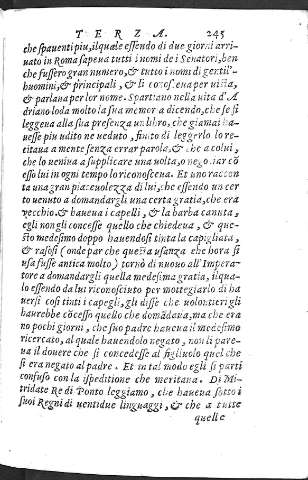 TERZA. 245
che spauenti piu, il quale essendo di due giorni arri-
uato in Roma sapeua tutti i nomi de i Senatori, ben
che fussero gran numero, & tutto i nomi di gentil'-
huomini, & principali, & li conosceua per uista,
& parlaua per lor nome. Spartiano nella uita d'A
driano loda molto la sua memoria dicendo, che se si
leggeua alla sua presenza un libro, che giamai ha-
uesse piu udito ne ueduto, finito di leggerlo lo re-
citaua a mente senza errar parola, & che a colui,
che lo ueniua a supplicare una uolta, o negotiar cō
esso lui in ogni tempo lo riconosceua. Et uno raccon
ta una gran piaceuolezza di lui, che essendo un cer
to uenuto a domandargli una certa gratia, che era
vecchio, & haueua i capelli, & la barba canuta,
egli non gli concesse quello che chiedeua, & que-
sto medesimo doppo hauendosi tinta la capigliata,
& rasosi (onde par che questa usanza che hora si
usa fusse antica molto) tornò di nuouo all'Impera-
tore a domandargli quella medesima gratia, il qua-
lo essendo da lui riconosciuto per motteggiarlo di ha
uersi cosi tinti i capegli, gli disse che uolontieri gli
haurebbe cōcesso quello che domādaua, ma che era
no pochi giorni, che suo padre haueua il medesimo
ricercato, al quale hauendolo negato, non li pare-
ua il douere che si concedesse al figliuolo quel che
si era negato al padre. Et in tal modo egli si parti
confuso con la ispeditione che meritaua. Di Mi-
tridate Re di Ponto leggiamo, che haueua sotto i
suoi Regni di uentidue linguaggi, & che a tutte
quelle